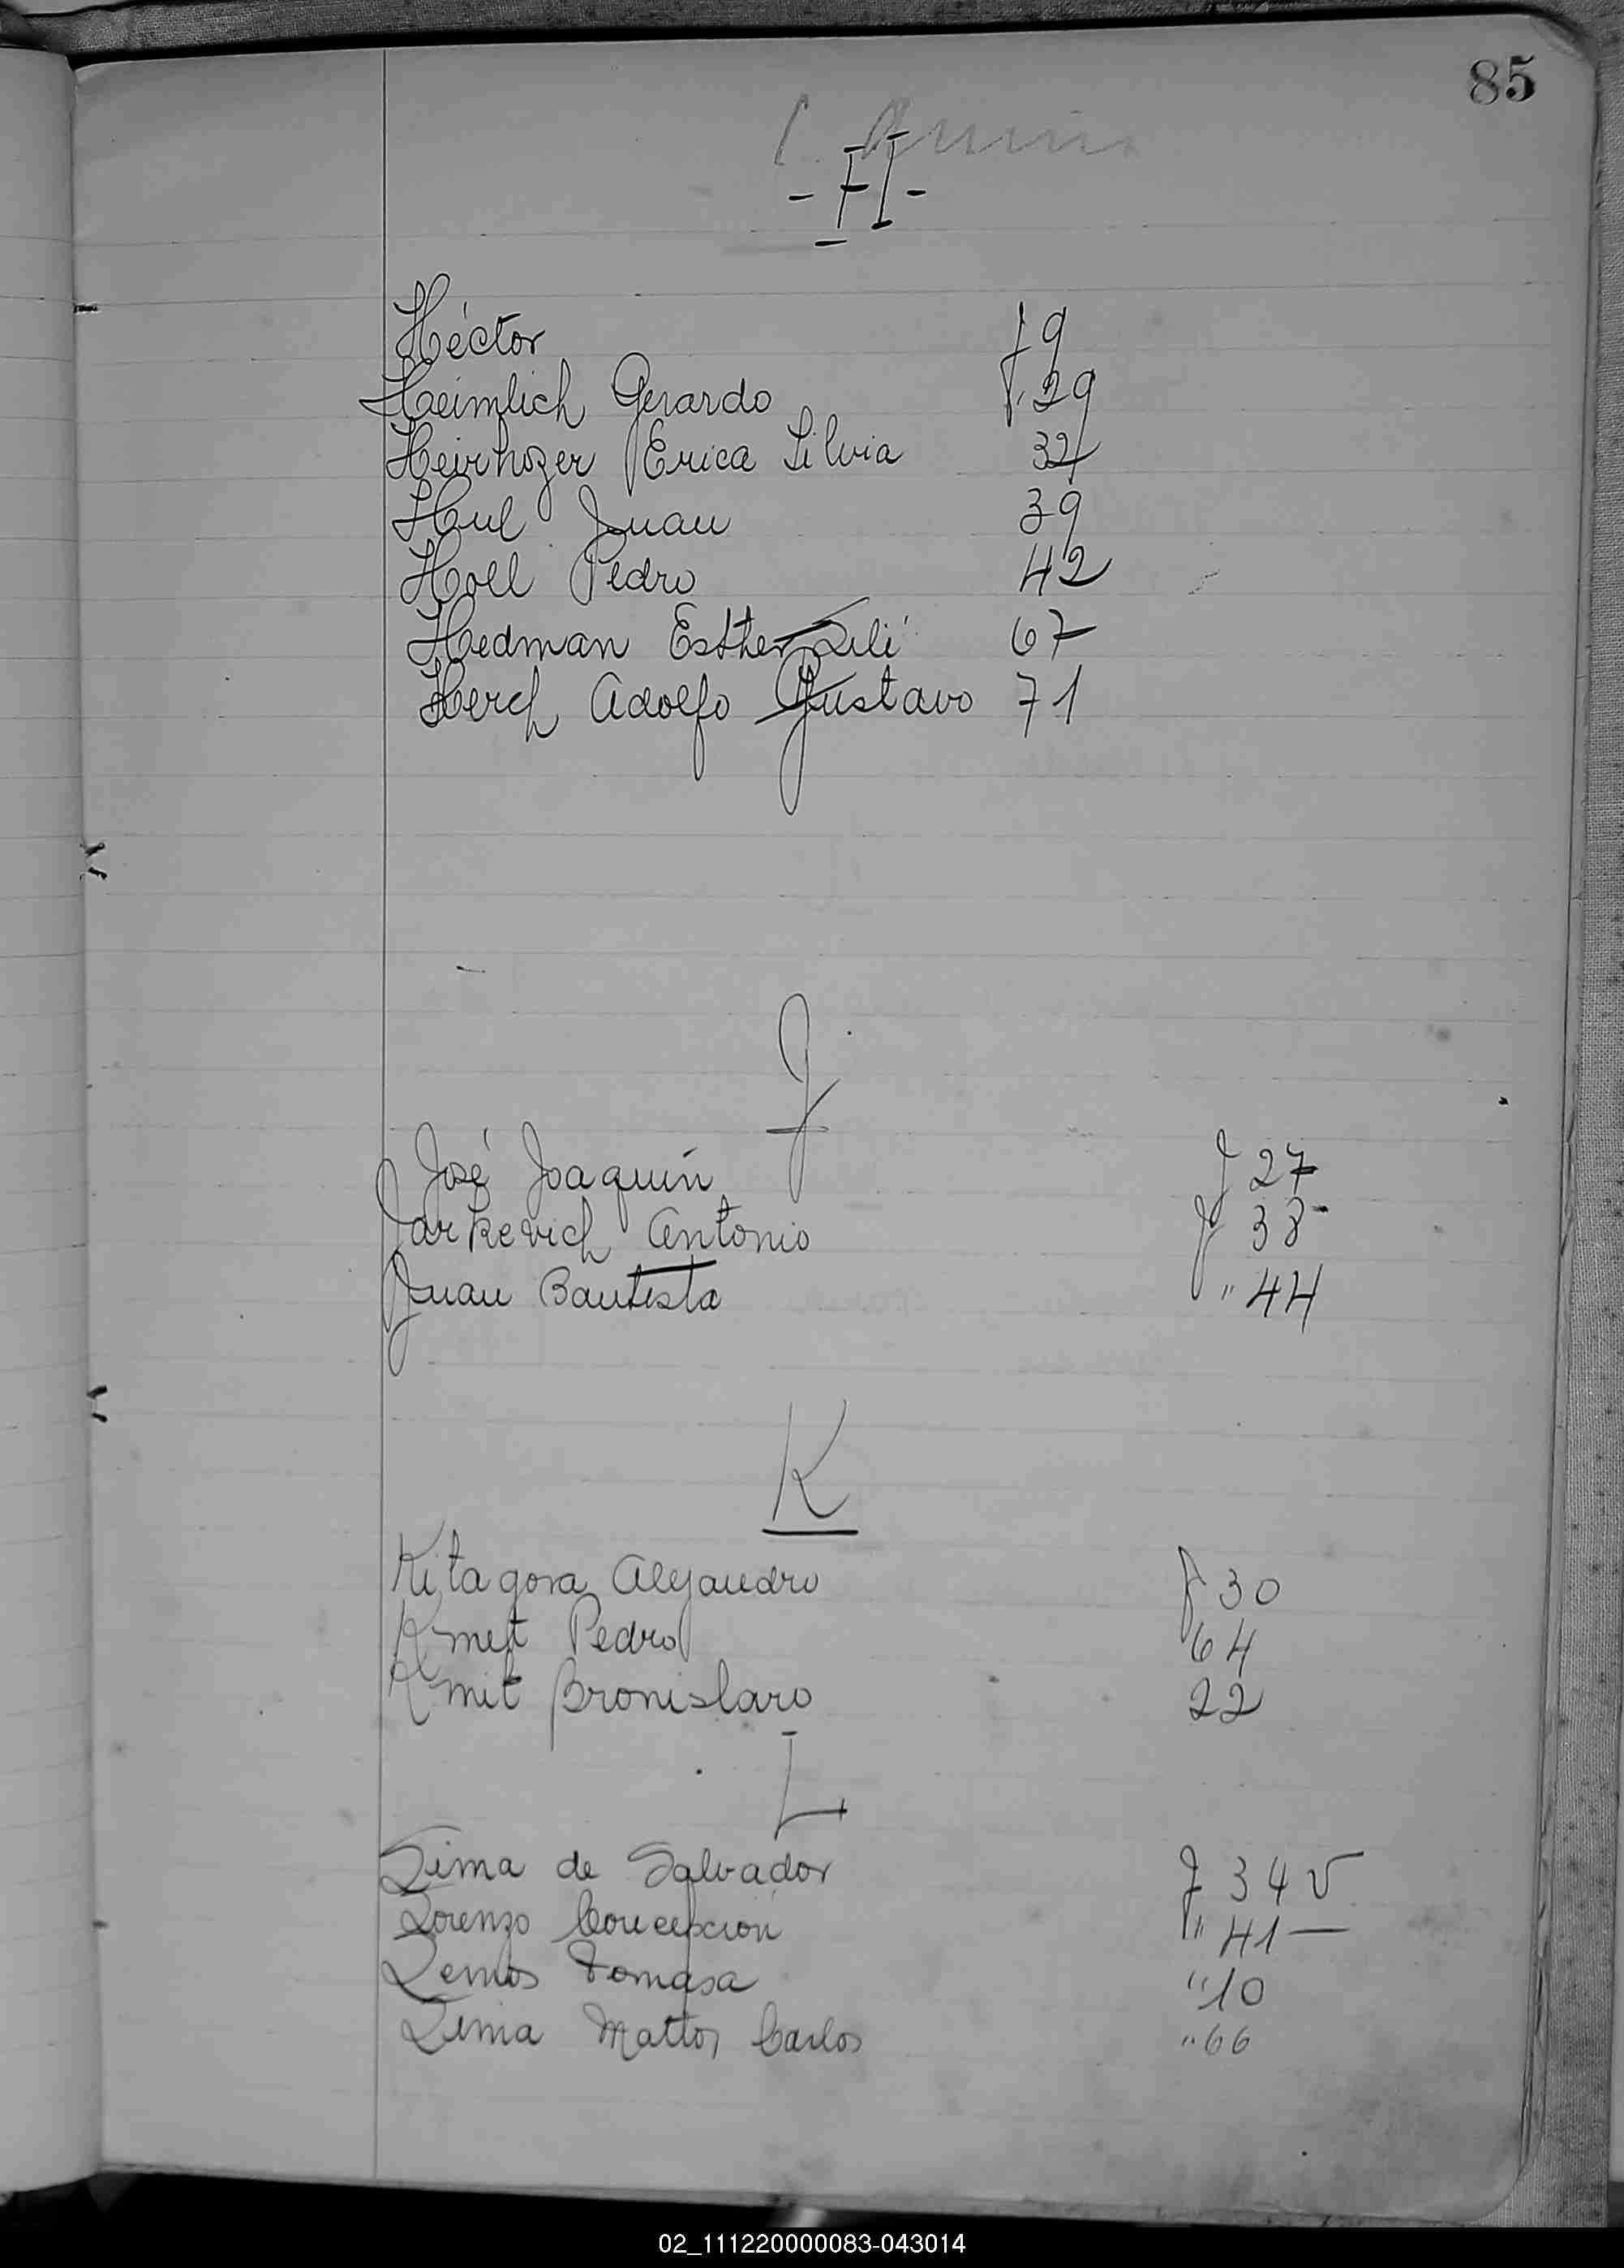 85
- H -
Héctor f 9
Heimlich Gerardo f. 29
Heirhozer Erica Silvia 32
Hul Juan 39
Holl Pedro 42
Hedman Esther Lili 67
Herch Adolfo Gustavo 71
J
José Joaquín f 27
Jarkevich Antonio f 38
Juan Bautista " 44
K
Kitagova Alejandro f 30
Kmet Pedro 64
Kmit Bronislaro 22
L
Lima de Salvador f 34 v
Lorenzo Concepción " 41 —
Lemos Tomasa " 10
Lima Mattos Carlos " 66
02_111220000083-043014